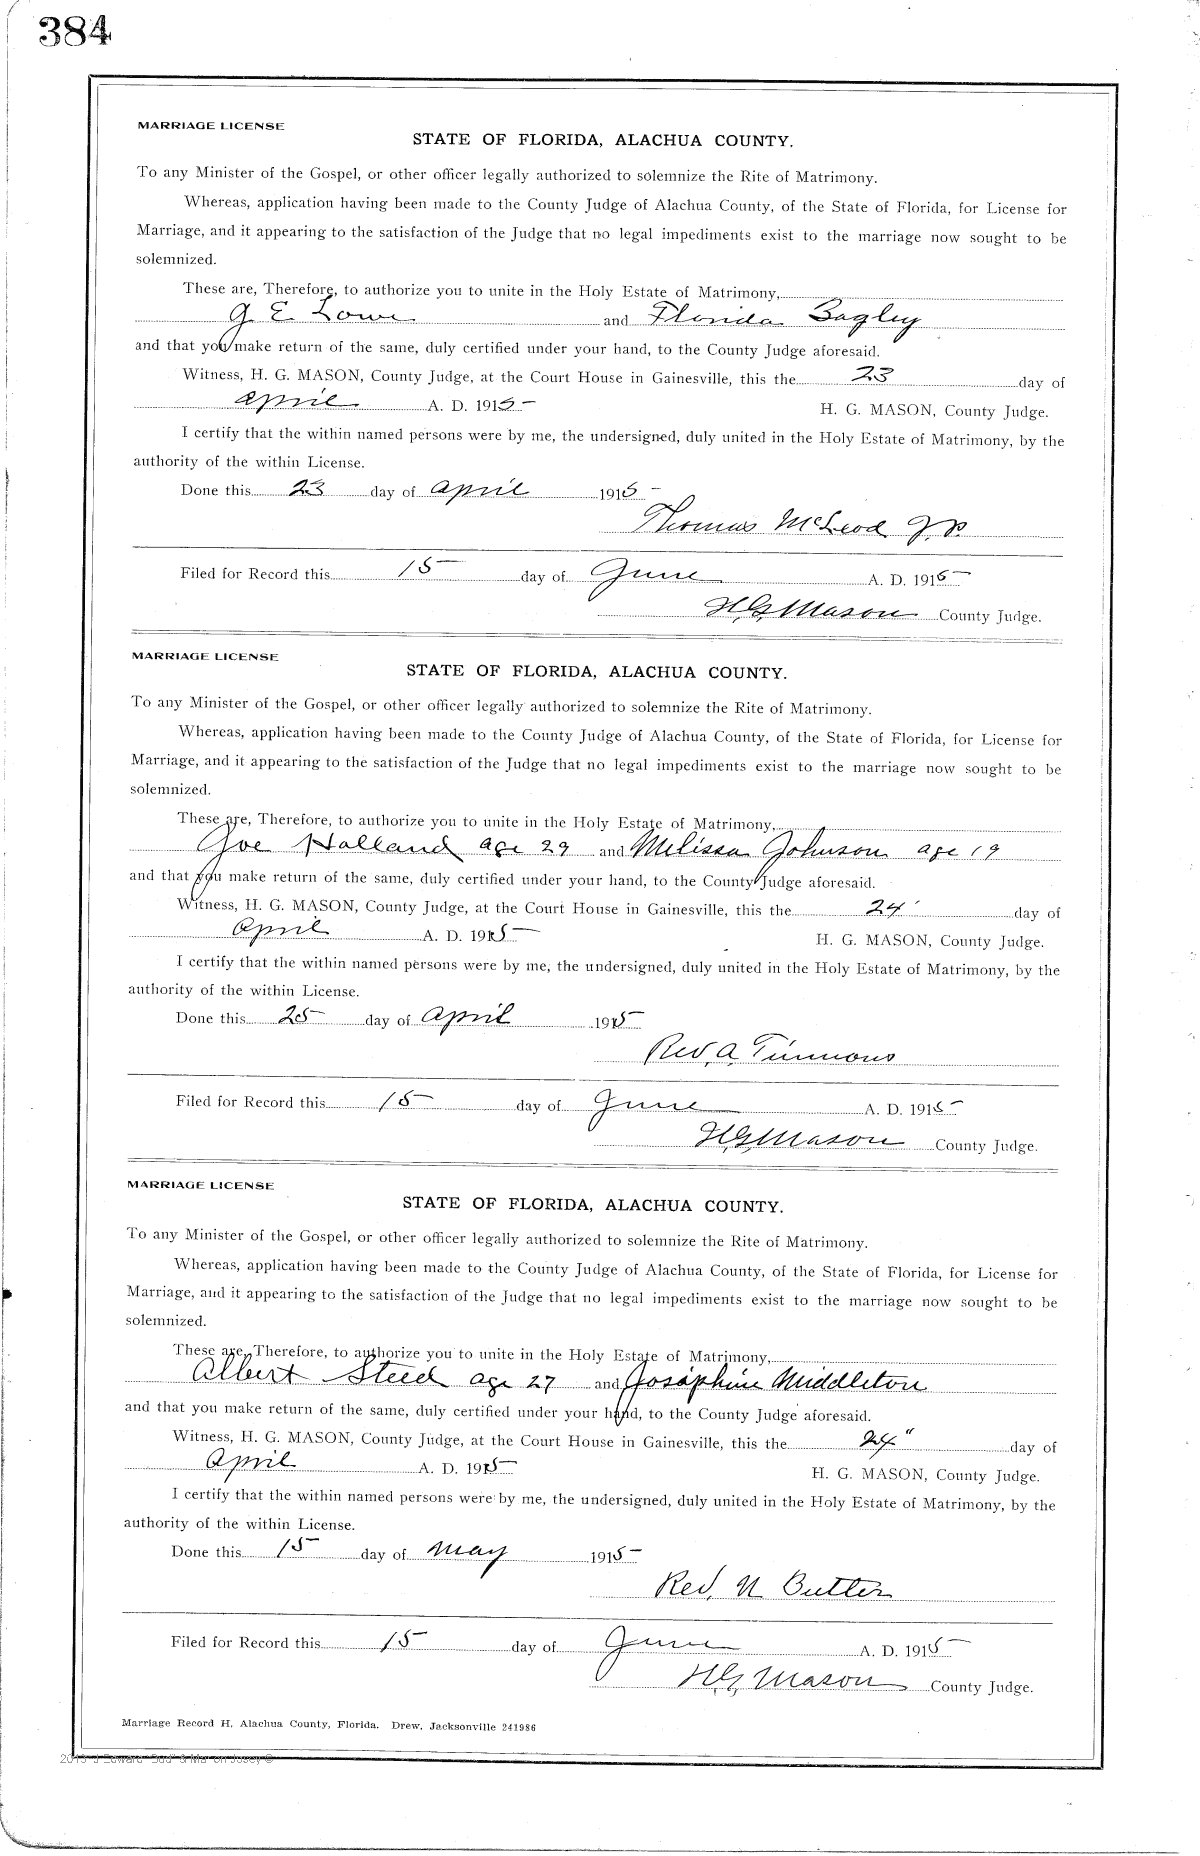 384
MARRIAGE LICENSE
STATE OF FLORIDA, ALACHUA COUNTY.
To any Minister of the Gospel, or other officer legally authorized to solemnize the Rite of Matrimony.
Whereas, application having been made to the County Judge of Alachua County, of the State of Florida, for License for
Marriage, and it appearing to the satisfaction of the Judge that no legal impediments exist to the marriage now sought to be
solemnized.
These are, Therefore, to authorize you to unite in the Holy Estate of Matrimony,
J. E. Lowe and Florida Bagley
and that you make return of the same, duly certified under your hand, to the County Judge aforesaid.
Witness, H. G. MASON, County Judge, at the Court House in Gainesville, this the 23 day of
April A. D. 1915 H. G. MASON, County Judge.
I certify that the within named persons were by me, the undersigned, duly united in the Holy Estate of Matrimony, by the
authority of the within License.
Done this 23 day of April 1915
Thomas McLeod J.P.
Filed for Record this 15 day of June A. D. 1915
H.G. Mason County Judge.
MARRIAGE LICENSE
STATE OF FLORIDA, ALACHUA COUNTY.
To any Minister of the Gospel, or other officer legally authorized to solemnize the Rite of Matrimony.
Whereas, application having been made to the County Judge of Alachua County, of the State of Florida, for License for
Marriage, and it appearing to the satisfaction of the Judge that no legal impediments exist to the marriage now sought to be
solemnized.
These are, Therefore, to authorize you to unite in the Holy Estate of Matrimony,
Joe Holland age 29 and Melissa Johnson age 19
and that you make return of the same, duly certified under your hand, to the County Judge aforesaid.
Witness, H. G. MASON, County Judge, at the Court House in Gainesville, this the 24 day of
April A. D. 1915 H. G. MASON, County Judge.
I certify that the within named persons were by me, the undersigned, duly united in the Holy Estate of Matrimony, by the
authority of the within License.
Done this 25 day of April 1915
Rev. A. Timmons
Filed for Record this 15 day of June A. D. 1915
H.G. Mason County Judge.
MARRIAGE LICENSE
STATE OF FLORIDA, ALACHUA COUNTY.
To any Minister of the Gospel, or other officer legally authorized to solemnize the Rite of Matrimony.
Whereas, application having been made to the County Judge of Alachua County, of the State of Florida, for License for
Marriage, and it appearing to the satisfaction of the Judge that no legal impediments exist to the marriage now sought to be
solemnized.
These are, Therefore, to authorize you to unite in the Holy Estate of Matrimony,
Albert Steed age 27 and Josephine Middleton
and that you make return of the same, duly certified under your hand, to the County Judge aforesaid.
Witness, H. G. MASON, County Judge, at the Court House in Gainesville, this the 24" day of
April A. D. 1915 H. G. MASON, County Judge.
I certify that the within named persons were by me, the undersigned, duly united in the Holy Estate of Matrimony, by the
authority of the within License.
Done this 15 day of May 1915
Rev. N Butler
Filed for Record this 15 day of June A. D. 1915
H.G. Mason County Judge.
Marriage Record H, Alachua County, Florida. Drew, Jacksonville 241986